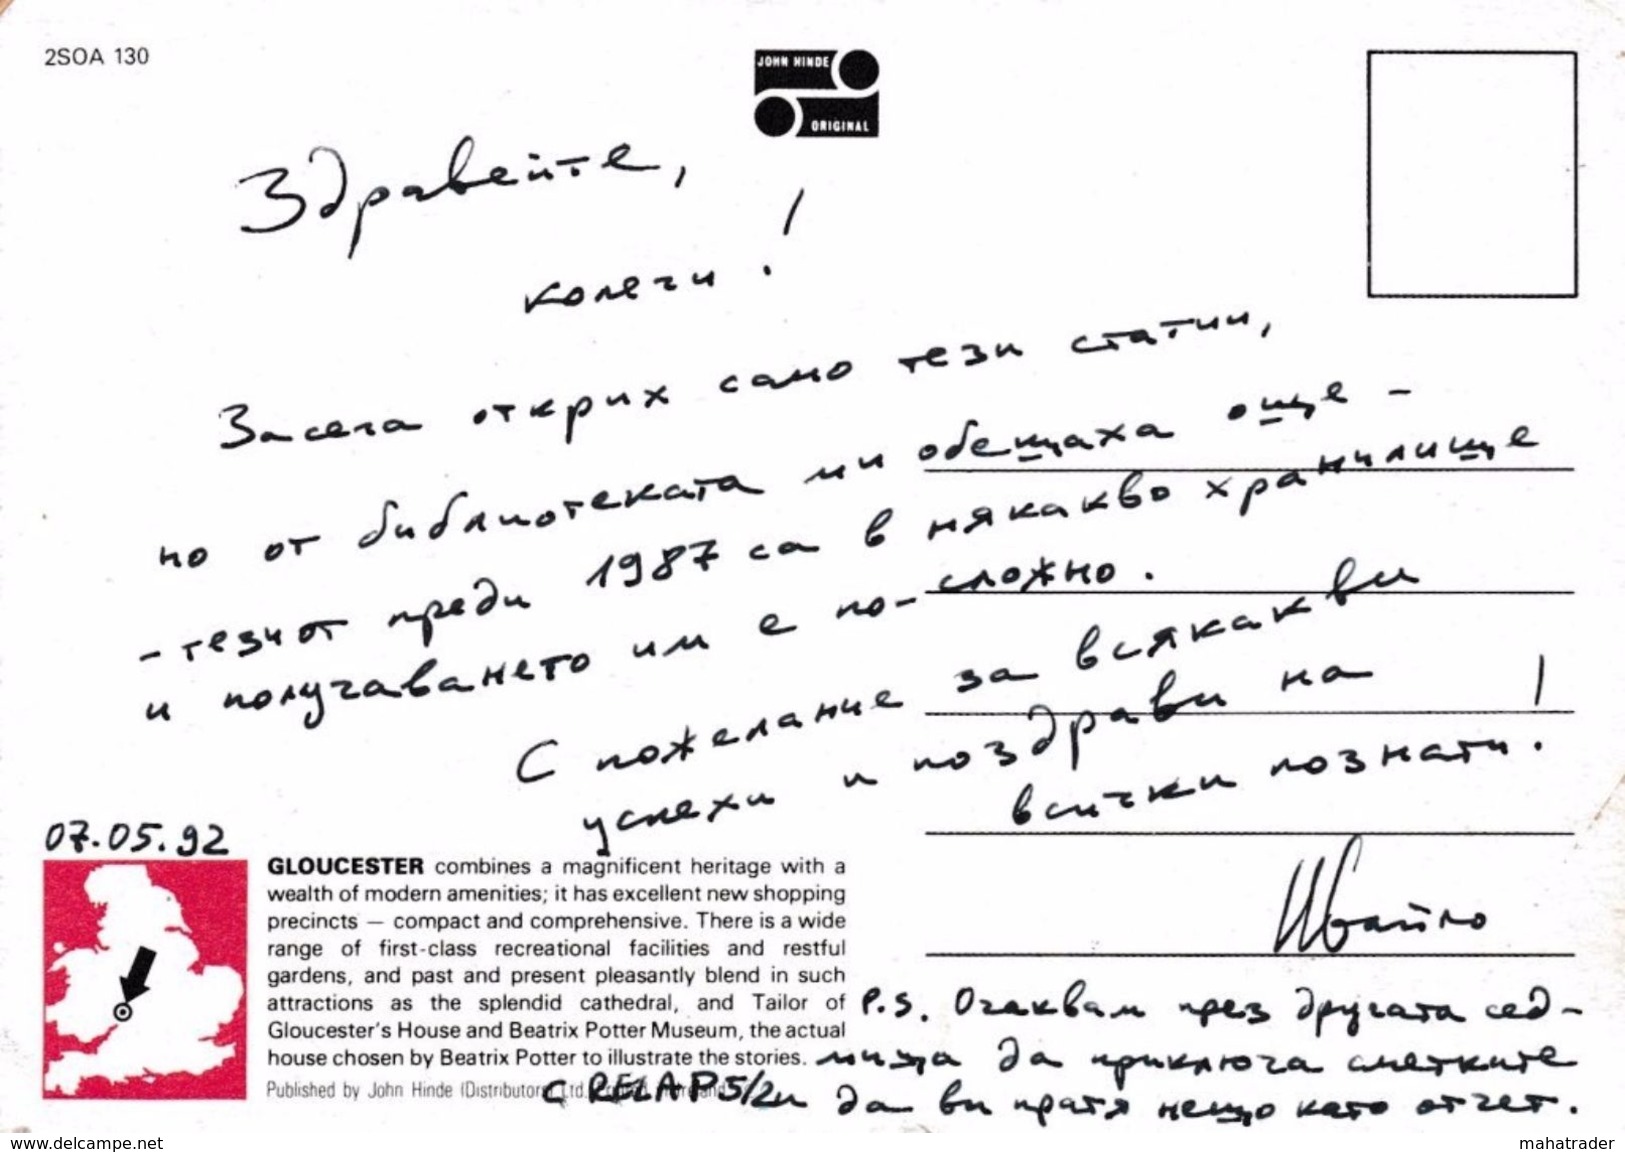 2SOA 130
JOHN HINDE
ORIGINAL
Здравейте,
колеги !
Засега открих само тези статии,
но от библиотеката ми обещаха още -
- тези от преди 1987 са в някакво хранилище
и получаването им е по-сложно.
С пожелание за всякакви
успехи и поздрави на
всички познати !
07.05.92
Ивайло
GLOUCESTER combines a magnificent heritage with a
wealth of modern amenities; it has excellent new shopping
precincts — compact and comprehensive. There is a wide
range of first-class recreational facilities and restful
gardens, and past and present pleasantly blend in such
attractions as the splendid cathedral, and Tailor of
Gloucester's House and Beatrix Potter Museum, the actual
house chosen by Beatrix Potter to illustrate the stories.
Published by John Hinde (Distributors) Ltd.
P.S. Очаквам през другата сед-
мица да приключа сметките
с RELAP5/2 и да ви пратя нещо като отчет.
www.delcampe.net
mahatrader